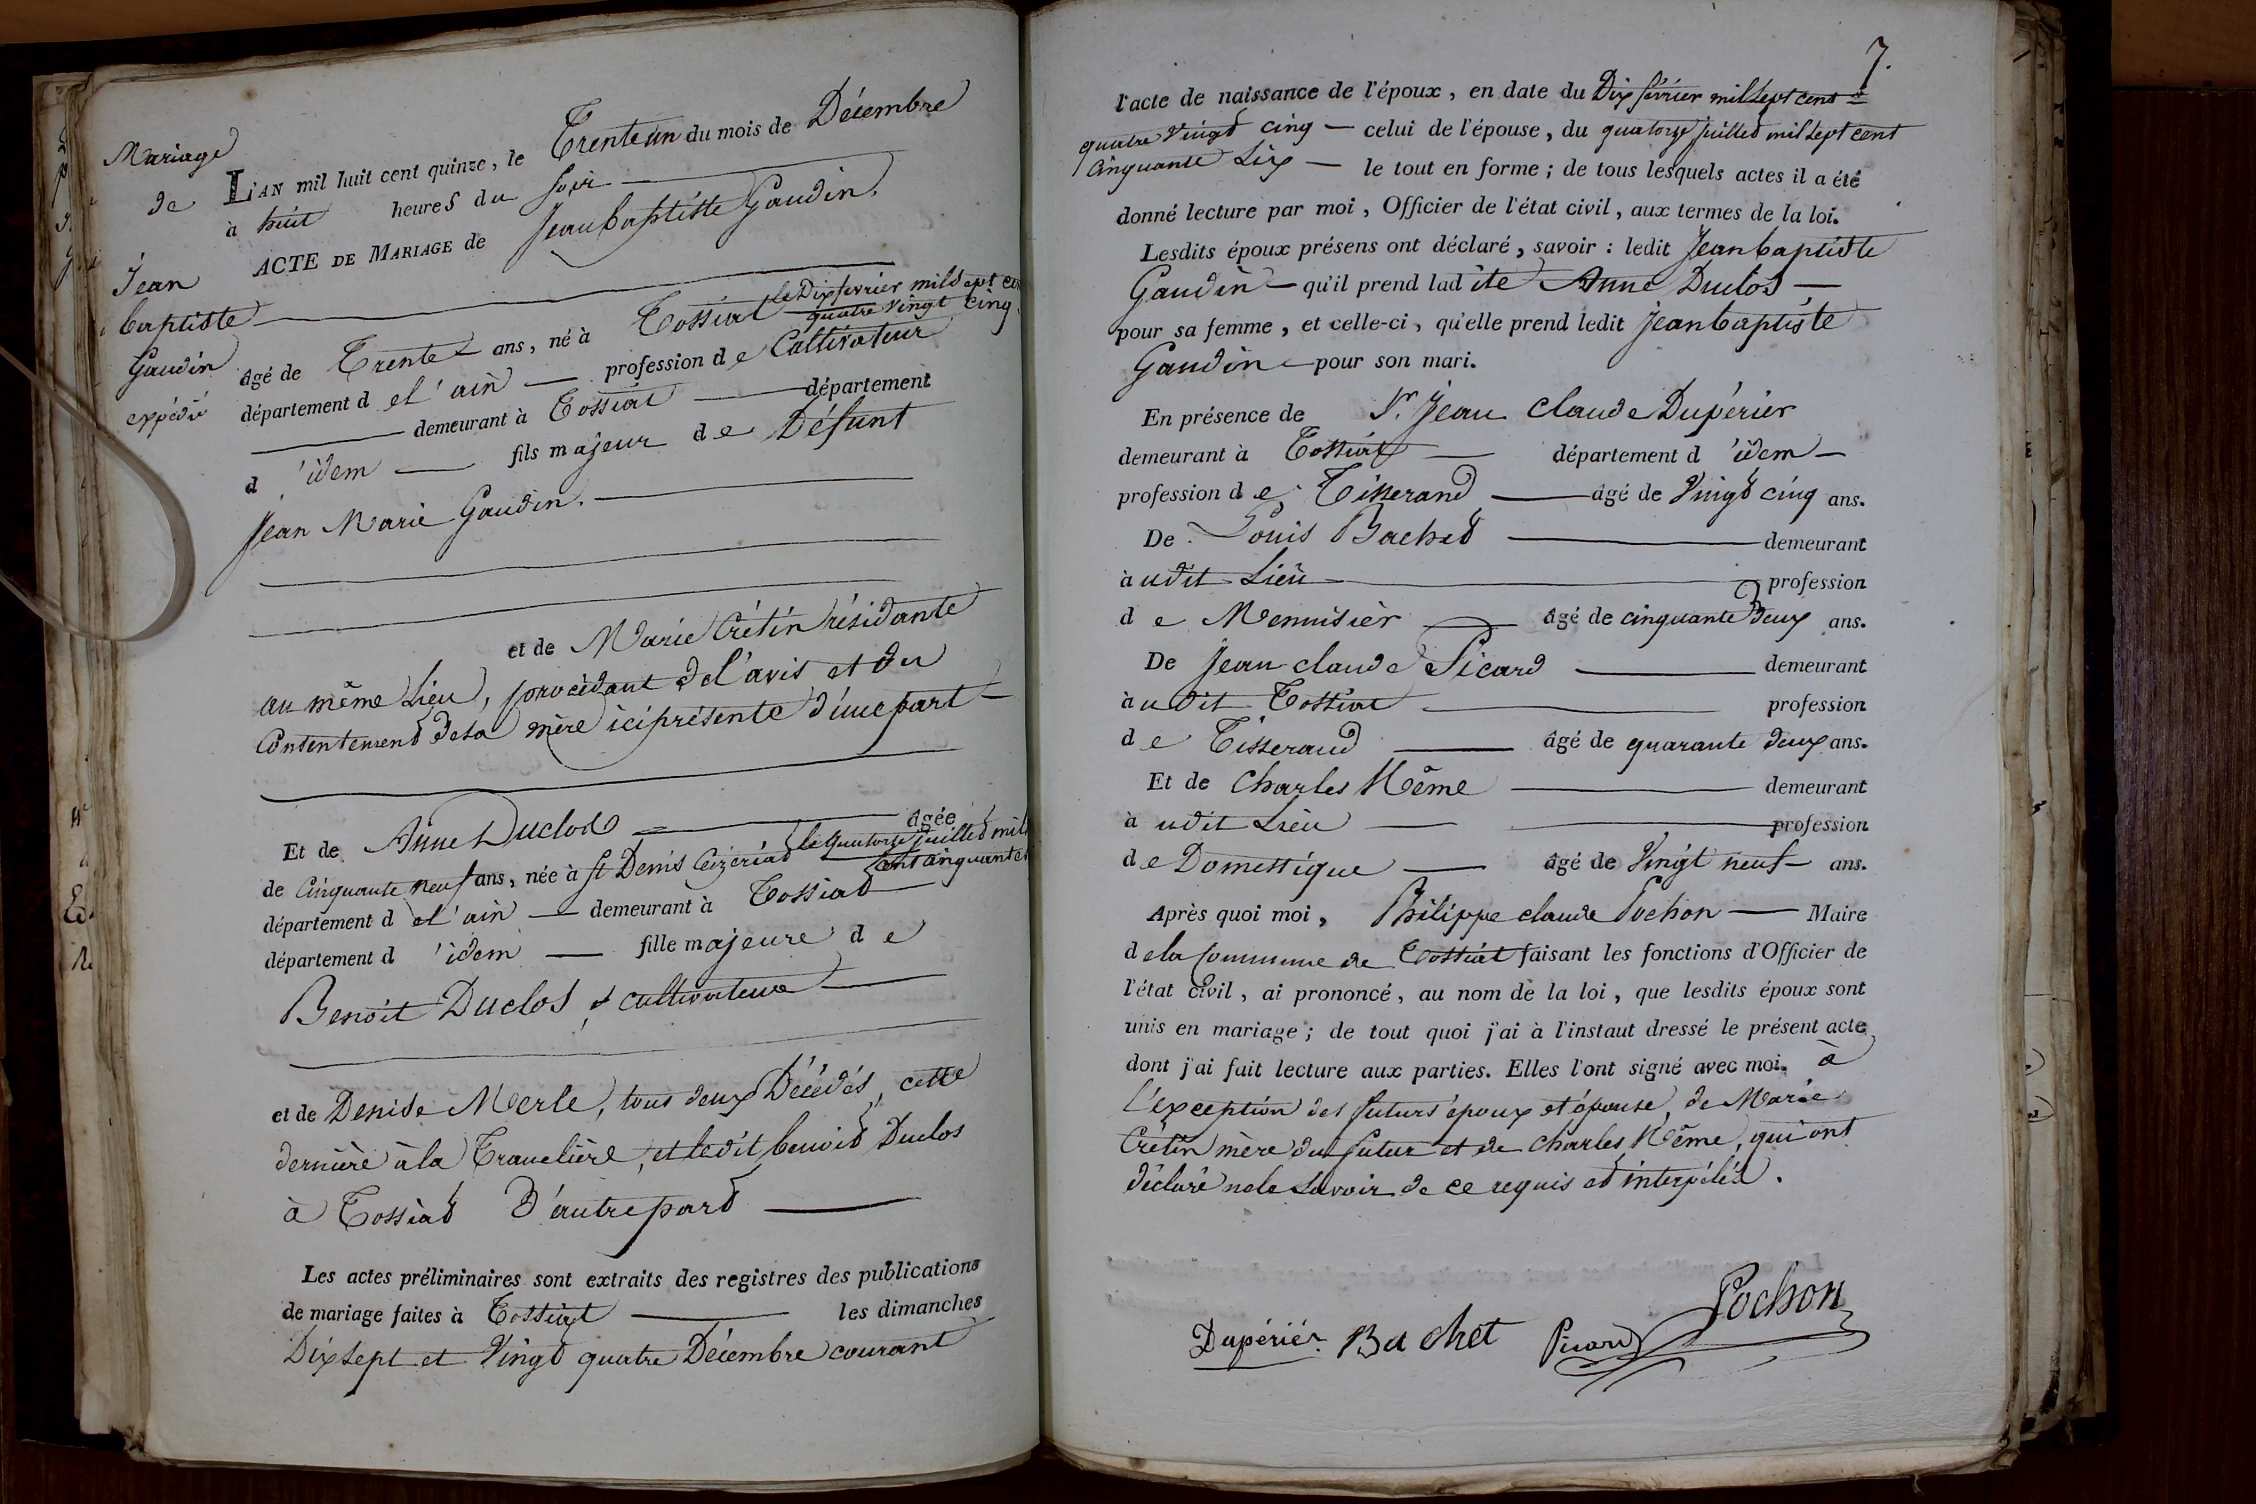 Mariage
de
Jean
baptiste
Gaudin
expédié
L'AN mil huit cent quinze, le Trente un du mois de Décembre
à huit heures du soir
ACTE DE MARIAGE de Jean baptiste Gaudin.
le Dix fevrier mil sept cen
âgé de Trente ans, né à Tossiat quatre vingt cinq
département de l'ain profession de Cultivateur
demeurant à Tossiat département
d'idem fils majeur de Défunt
Jean Marie Gaudin.
et de Marie Crétin résidante
au même Lieu, procédant de l'avis et du
Consentement de sa mère ici présente d'une part
Et de Anne Duclos âgée
le quatorze juillet mil
de Cinquante neuf ans, née à St Denis Ceizériat cent cinquante
département de l'ain demeurant à Tossiat
département d'idem fille majeure de
Benoit Duclos, cultivateur
et de Denise Merle, tous deux Décédés, cette
dernière à la Tranclière, et ledit benoit Duclos
à Tossiat D'autre part
Les actes préliminaires sont extraits des registres des publications
de mariage faites à Tossiat les dimanches
Dix sept et Vingt quatre Décembre courant
7.
l'acte de naissance de l'époux, en date du Dix février mil sept cent
quatre Vingt cinq celui de l'épouse, du quatorze juillet mil sept cent
Cinquante Six le tout en forme; de tous lesquels actes il a été
donné lecture par moi, Officier de l'état civil, aux termes de la loi.
Lesdits époux présens ont déclaré, savoir: ledit Jean baptiste
Gaudin qu'il prend ladite Anne Duclos
pour sa femme, et celle-ci, qu'elle prend ledit Jean baptiste
Gaudin pour son mari.
En présence de Sr. Jean Claude Dupérier
demeurant à Tossiat département d'idem
profession de Tisserand âgé de Vingt cinq ans.
De Louis Bachet demeurant
audit Lieu profession
de Menuisier âgé de cinquante deux ans.
De Jean claude Picard demeurant
audit Tossiat profession
de Tisserand âgé de quarante deux ans.
Et de Charles Même demeurant
audit Lieu profession
de Domestique âgé de Vingt neuf ans.
Après quoi moi, Philippe claude Pochon Maire
de la Commune de Tossiat faisant les fonctions d'Officier de
l'état civil, ai prononcé, au nom de la loi, que lesdits époux sont
unis en mariage; de tout quoi j'ai à l'instaut dressé le présent acte
dont j'ai fait lecture aux parties. Elles l'ont signé avec moi. à
L'exception des futurs époux et épouse, de Marie
Crétin mère du futur et de Charles Même, qui ont
déclaré ne le Savoir de ce requis et interpélés.
Dupérier Bachet Picard Pochon